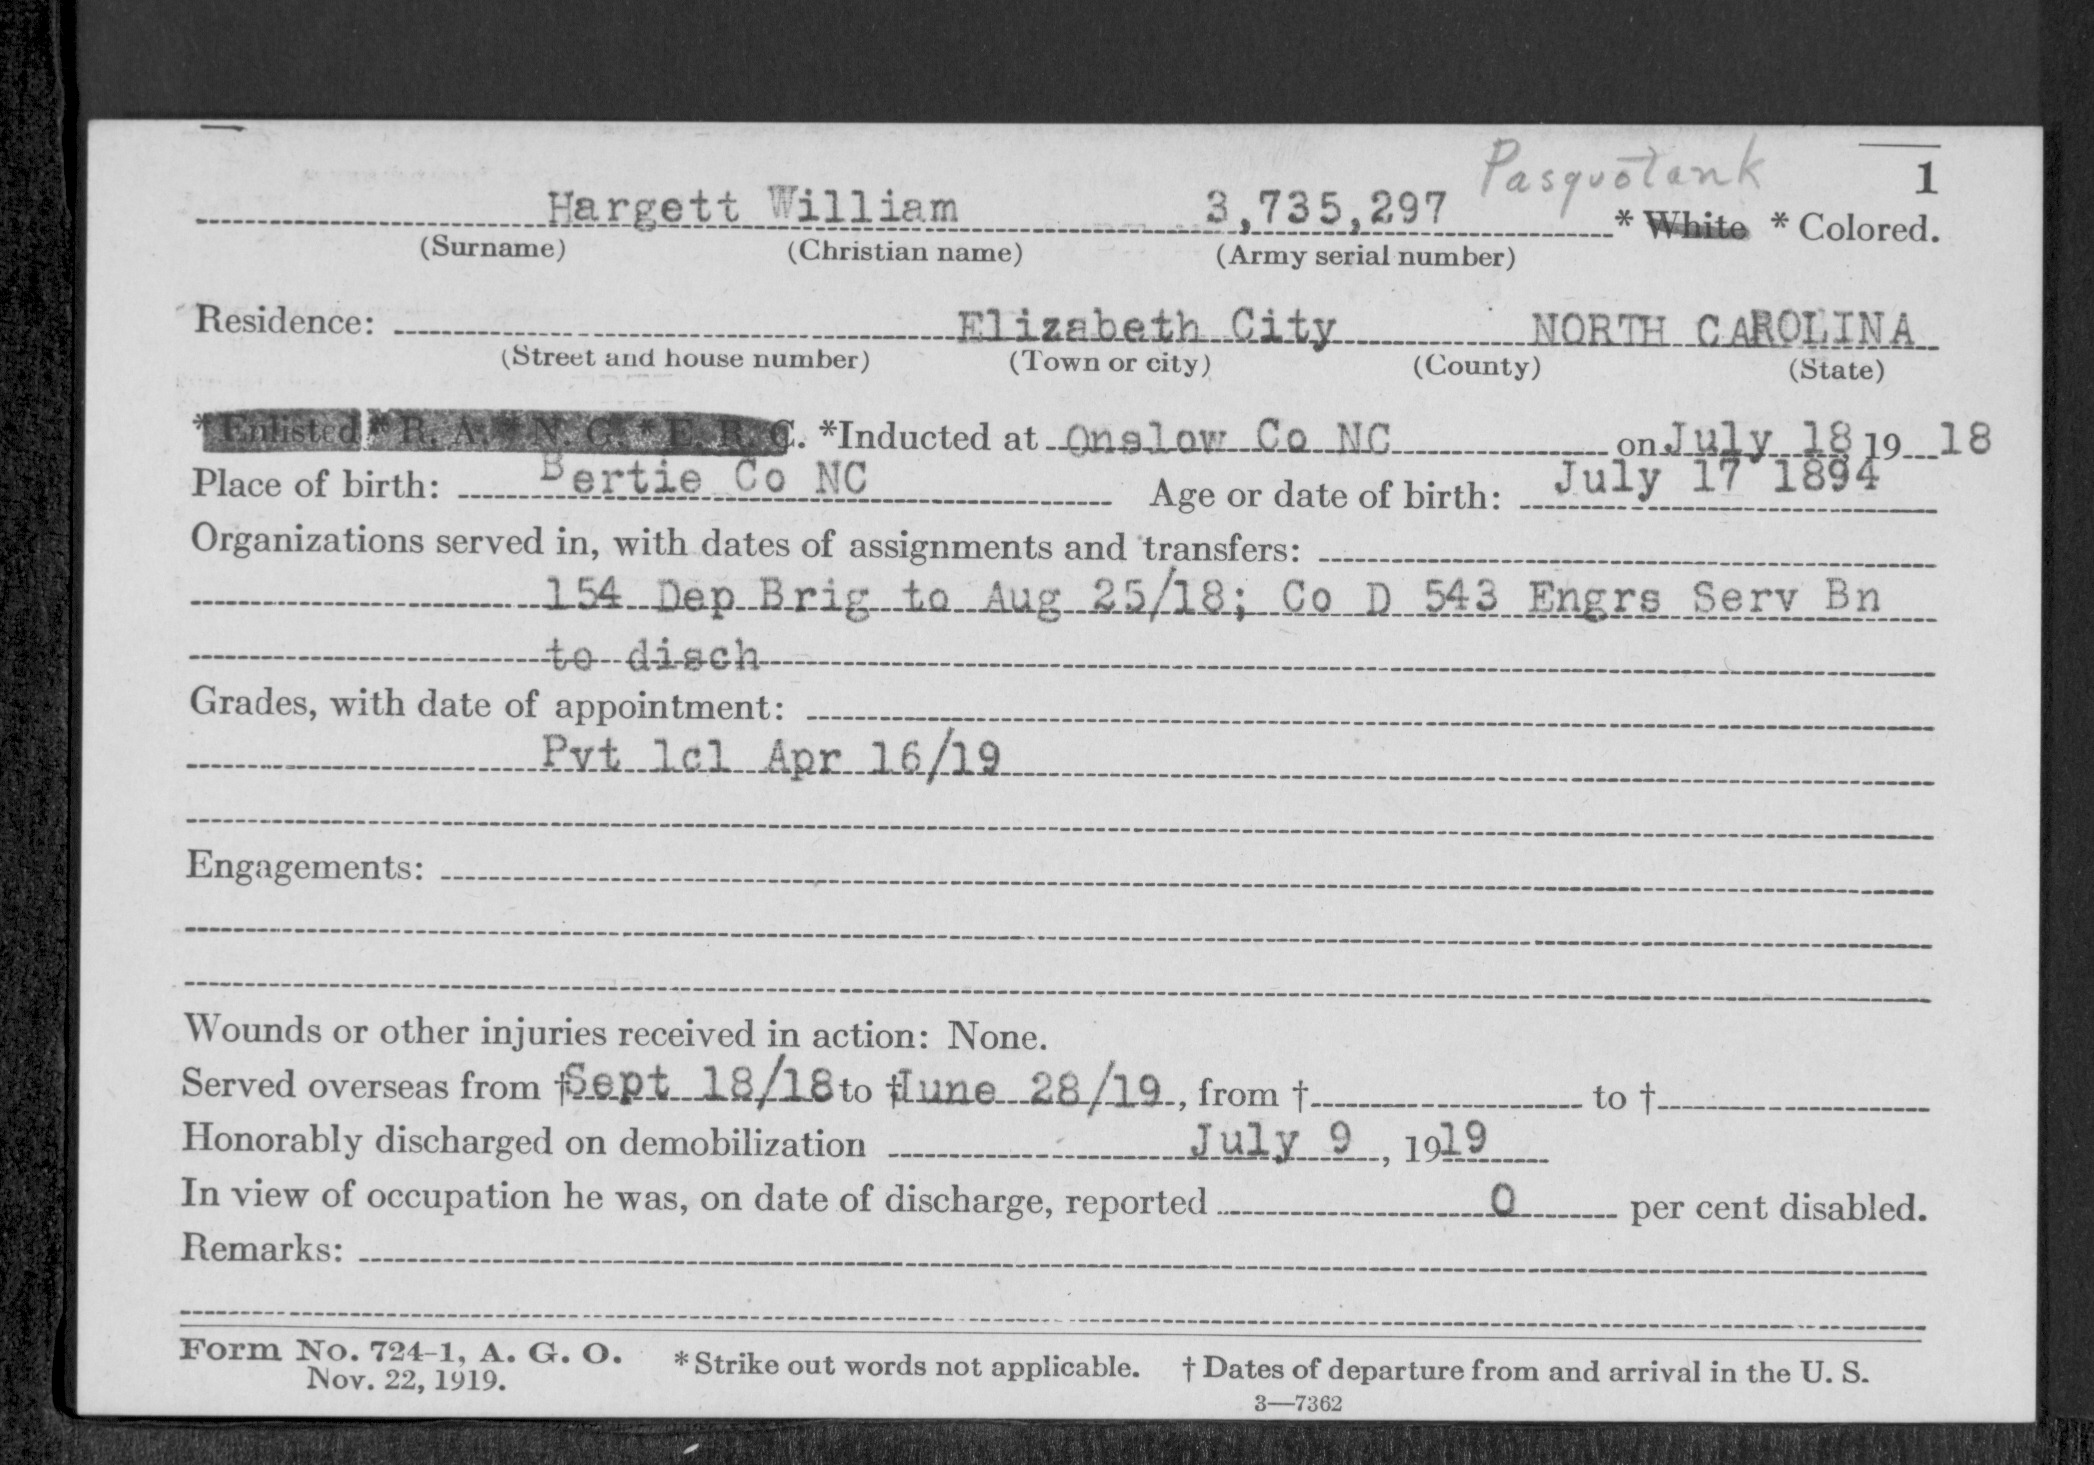 Pasquotank
1
Hargett William 3,735,297 * White * Colored.
(Surname) (Christian name) (Army serial number)
Residence: Elizabeth City NORTH CAROLINA
(Street and house number) (Town or city) (County) (State)
* Enlisted * R. A. * N. G. * E. R. C. *Inducted at Onslow Co NC on July 18 19 18
Place of birth: Bertie Co NC Age or date of birth: July 17 1894
Organizations served in, with dates of assignments and transfers:
154 Dep Brig to Aug 25/18; Co D 543 Engrs Serv Bn
to disch
Grades, with date of appointment:
Pvt 1cl Apr 16/19
Engagements:
Wounds or other injuries received in action: None.
Served overseas from †Sept 18/18 to †June 28/19, from † to †
Honorably discharged on demobilization July 9, 1919
In view of occupation he was, on date of discharge, reported 0 per cent disabled.
Remarks:
Form No. 724-1, A. G. O. * Strike out words not applicable. † Dates of departure from and arrival in the U. S.
Nov. 22, 1919.
3—7362